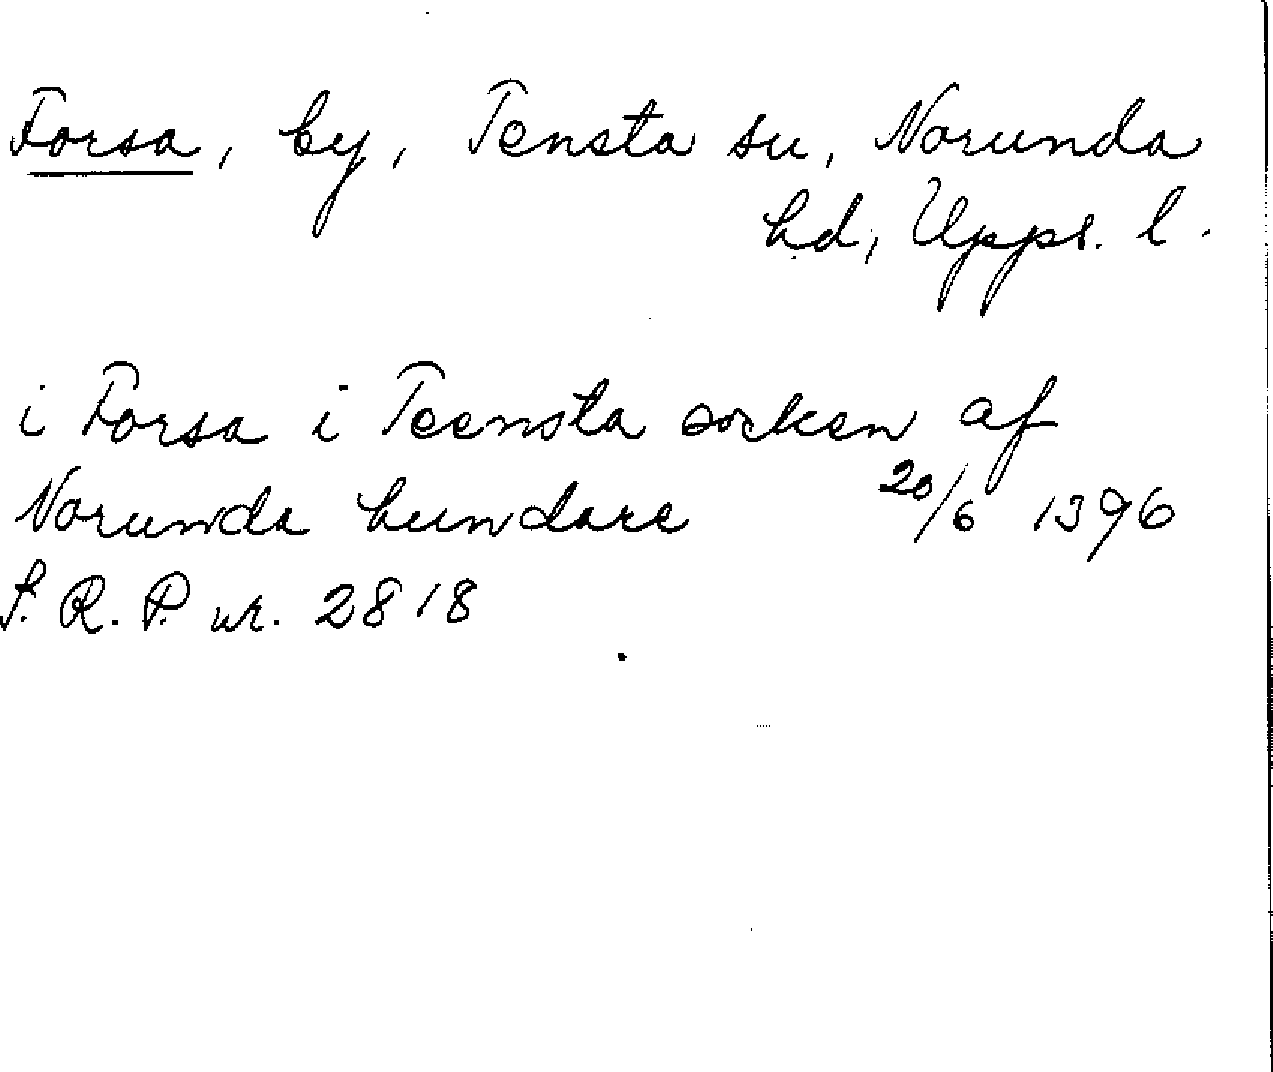 Forsa, by, Tensta sn, Norunda
hd, Upps. l.
i Forsa i Teensta socken af
Norunda hundare 20/6 1396
S. R. P. nr. 2818